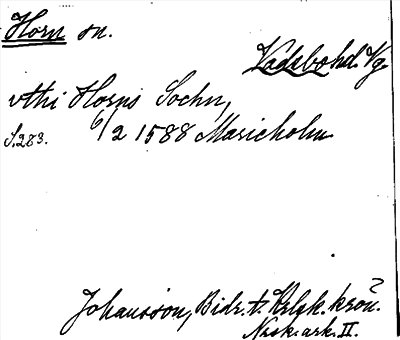 Horn sn.
Vadsbohd. Vg.
vthi Horns Sochn,
S. 283. 6/2 1588 Marieholm
Johansson, Bidr. t. Kelgk. krön.
Nesk. ark. II.